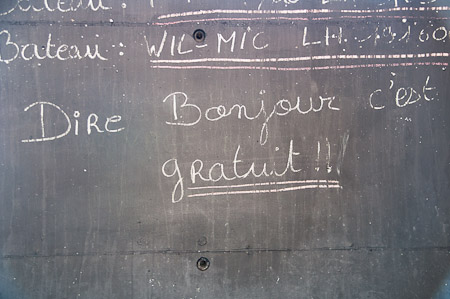 Bateau :
Bateau : WIL-MIC LH
Dire Bonjour c'est
gratuit !!!